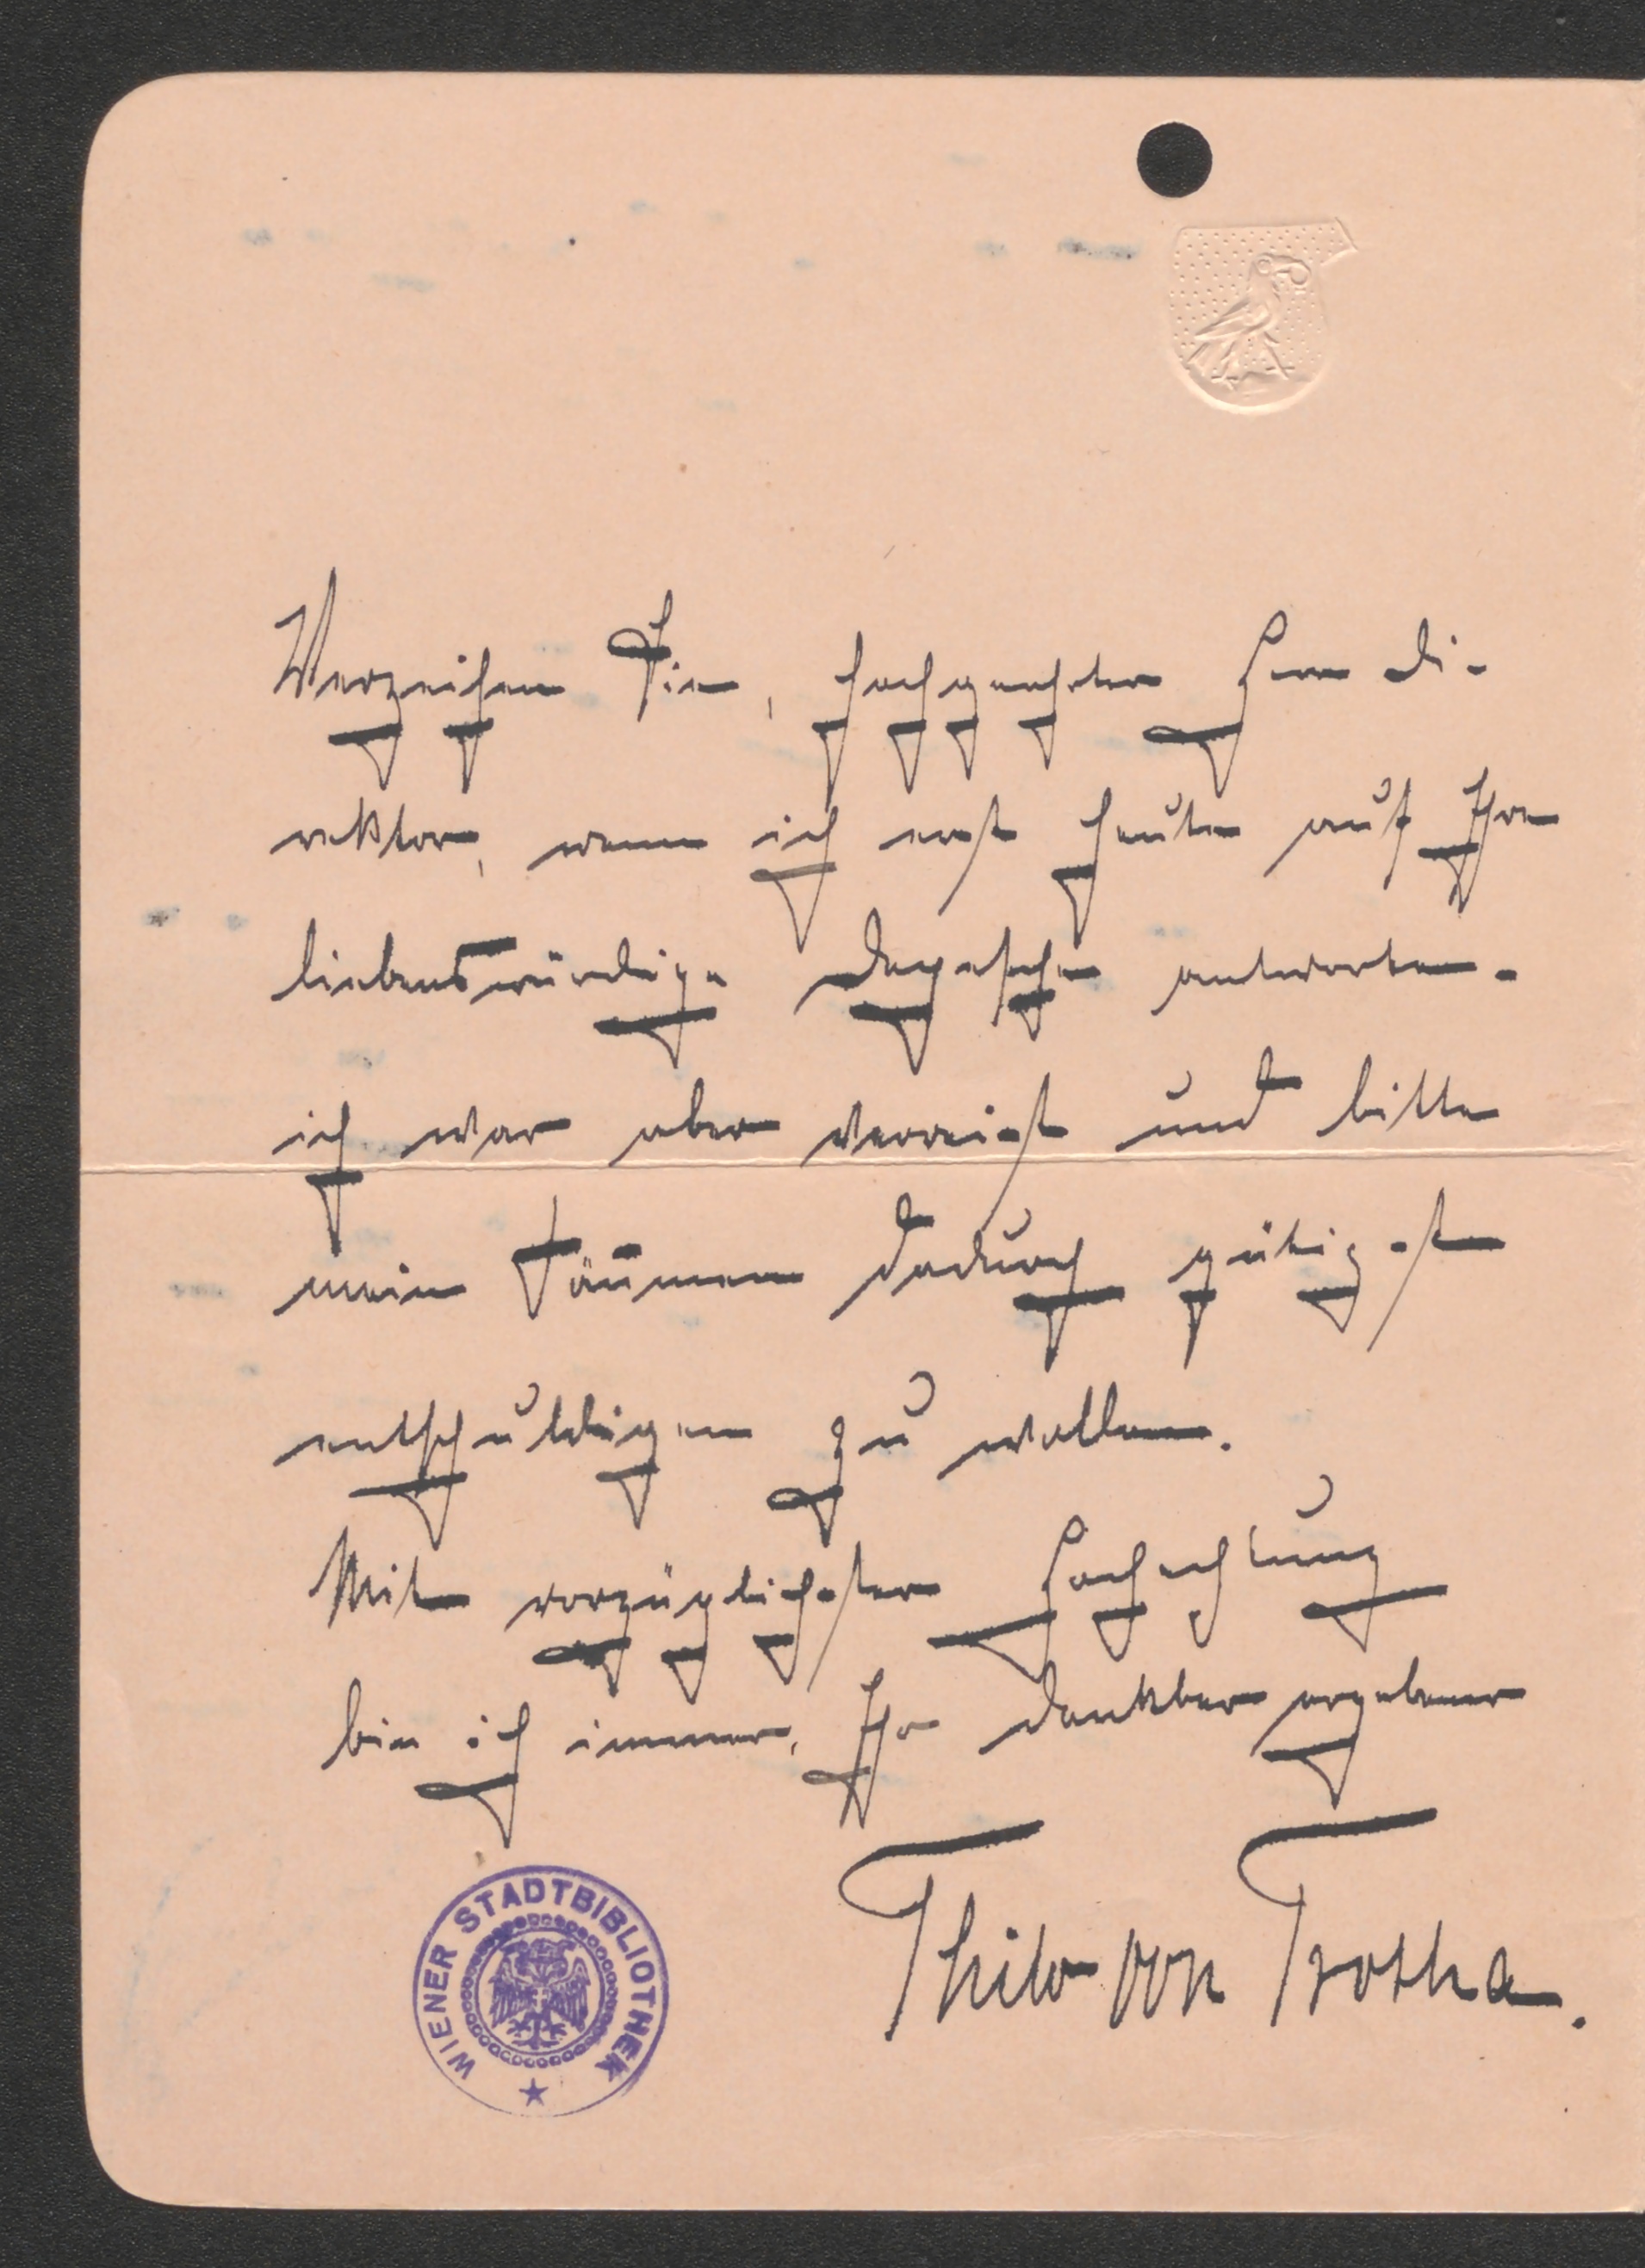 Verzeihen Sie, hochgeehrter Herr Di-
rektor, wenn ich erst heute auf Ihre
liebenswürdige Depesche antworte.
ich war aber verreist und bitte
mein Säumen dadurch gütigst
entschuldigen zu wollen.
Mit vorzüglichster Hochachtung
bin ich immer, Ihr dankbar ergebener
Thilo von Trotha.
WIENER STADTBIBLIOTHEK